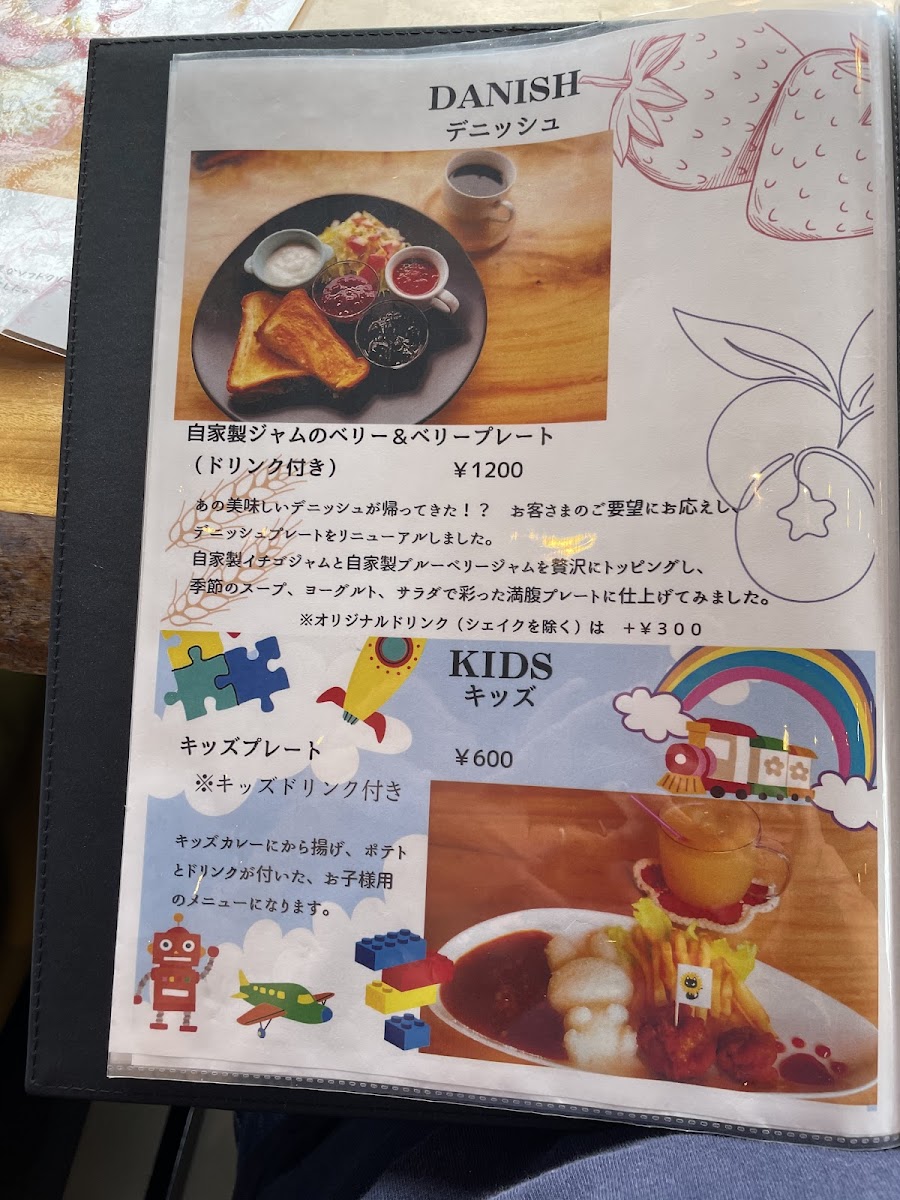 DANISH
デニッシュ
自家製ジャムのベリー＆ベリープレート
（ドリンク付き）　￥1200
あの美味しいデニッシュが帰ってきた！？　お客さまのご要望にお応えし、
デニッシュプレートをリニューアルしました。
自家製イチゴジャムと自家製ブルーベリージャムを贅沢にトッピングし、
季節のスープ、ヨーグルト、サラダで彩った満腹プレートに仕上げてみました。
※オリジナルドリンク（シェイクを除く）は　＋￥３００
KIDS
キッズ
キッズプレート　￥600
※キッズドリンク付き
キッズカレーにから揚げ、ポテト
とドリンクが付いた、お子様用
のメニューになります。